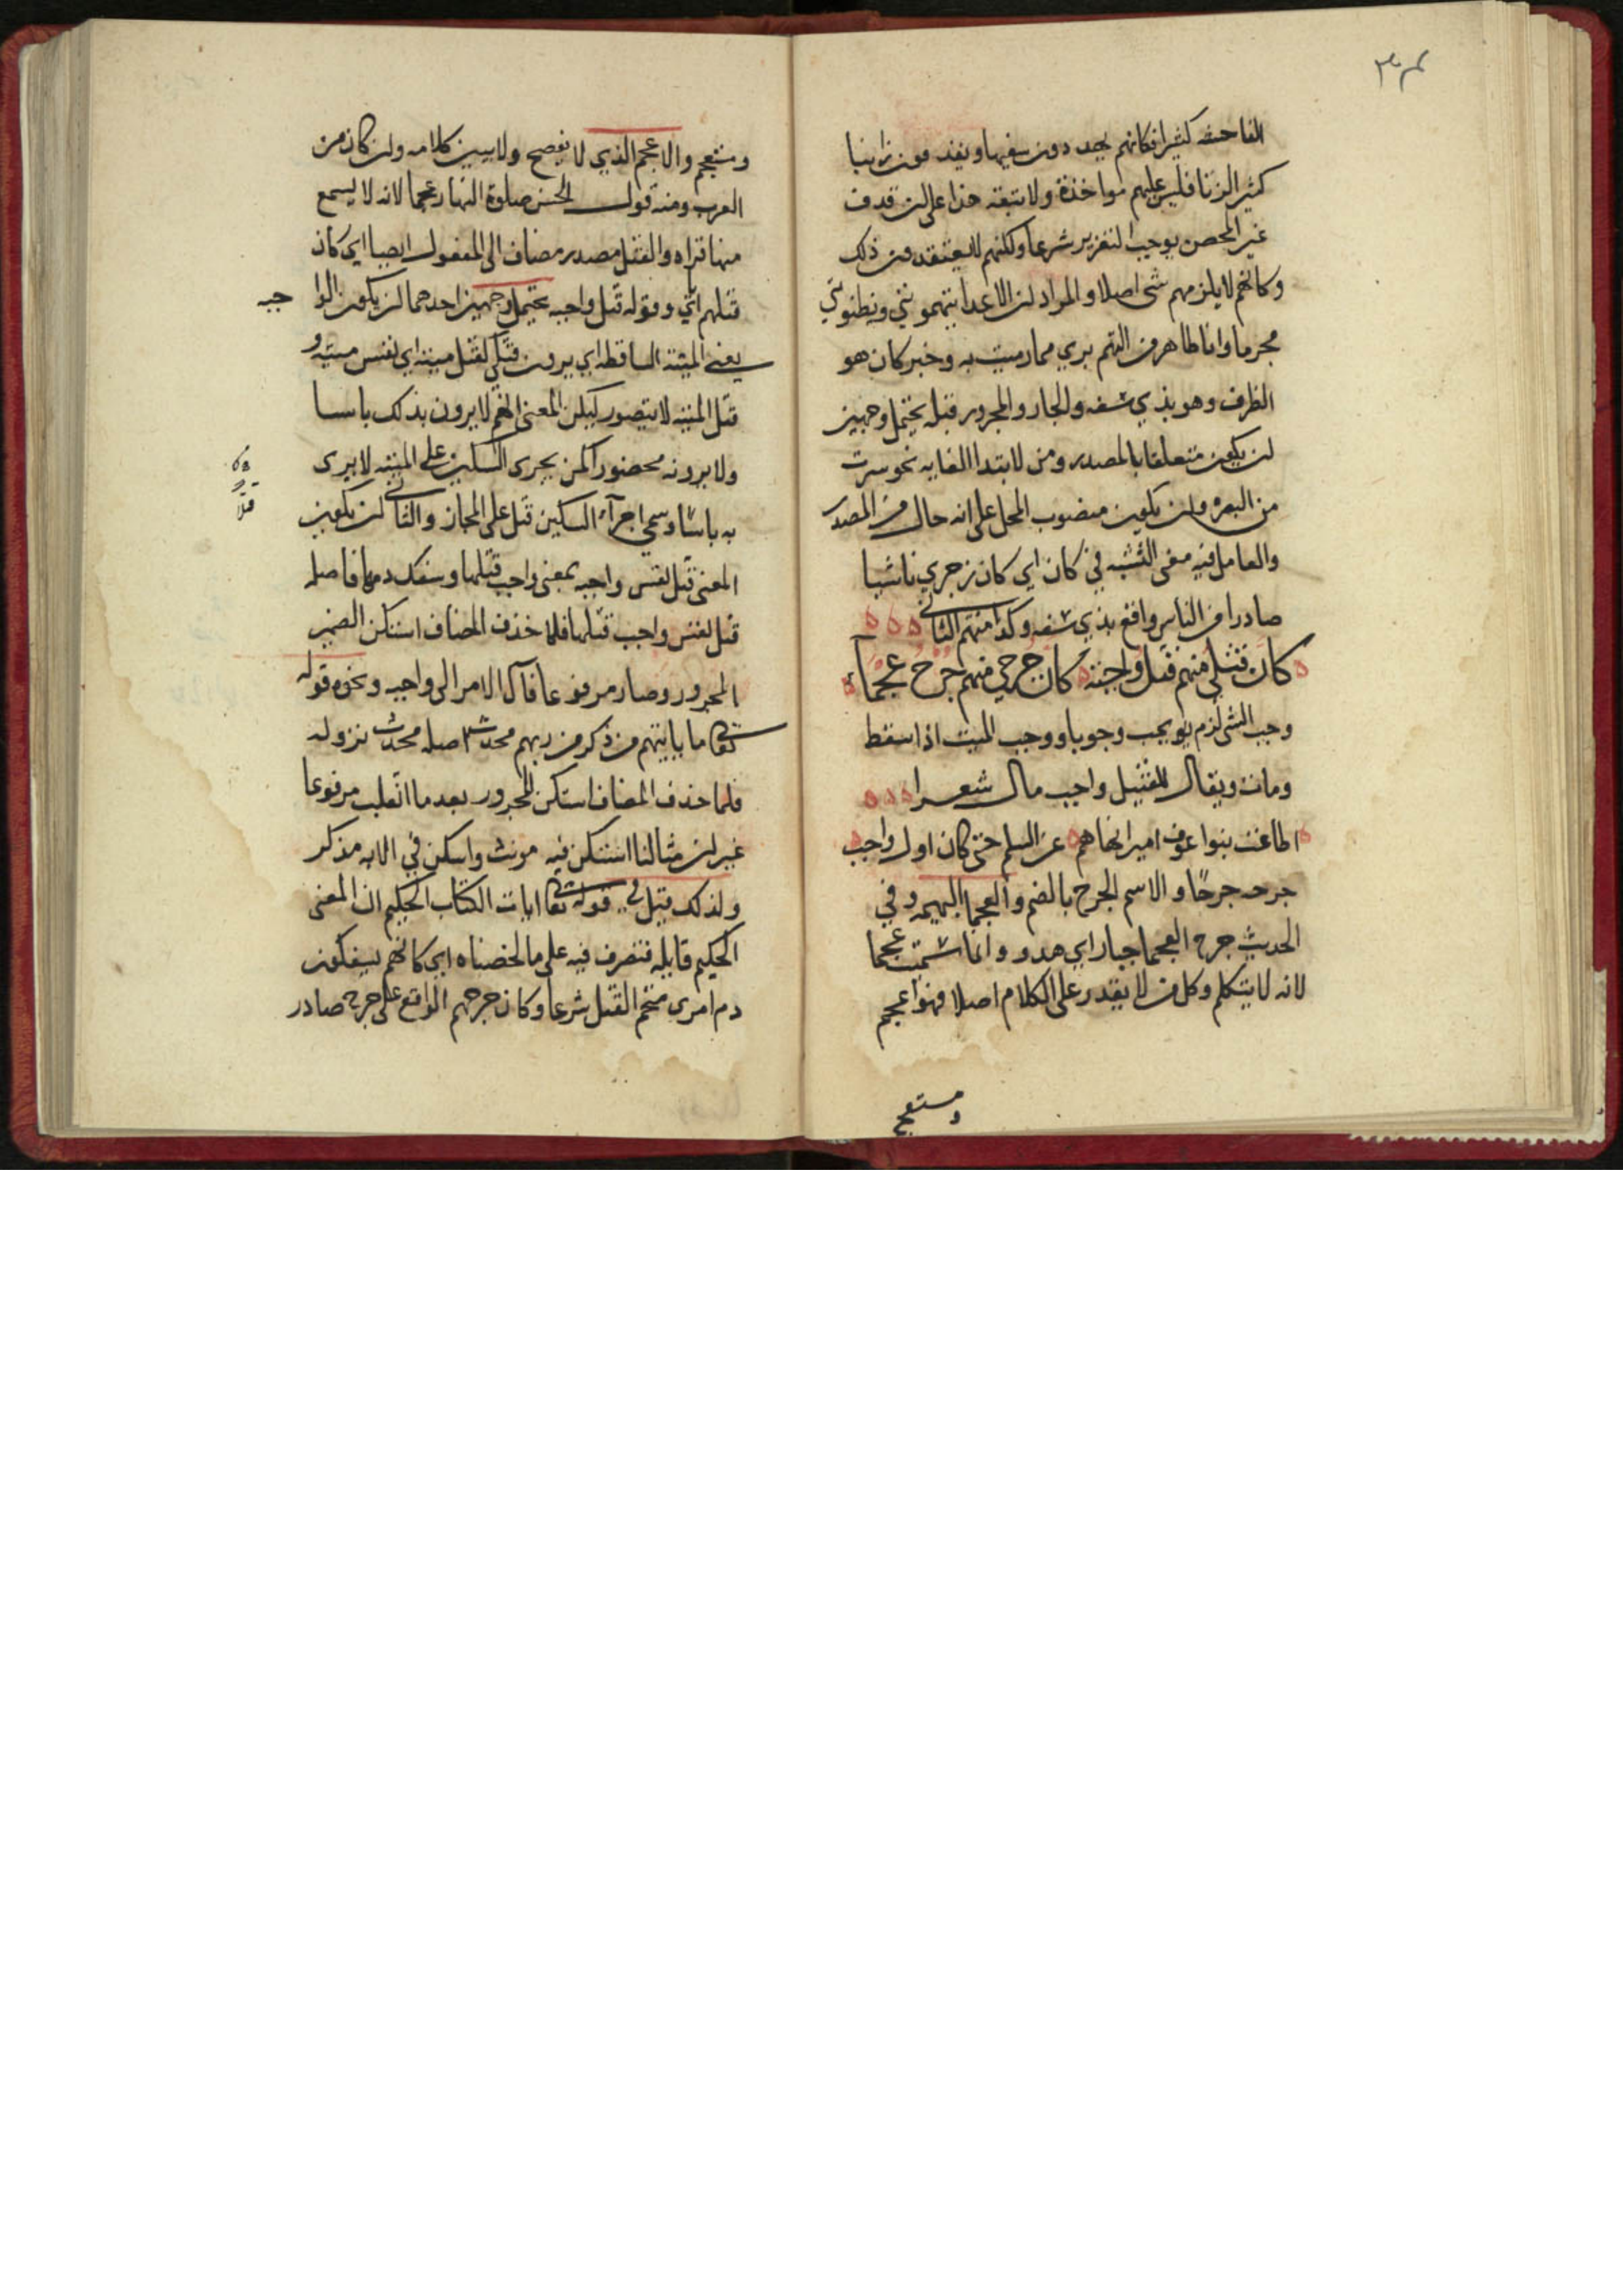 الفاحشة كثيرا فكانهم يجددون سفيها ويقذفون زانيا
كثير الزنا فليس عليهم مواخذة ولا تبعة هذا على ان قذف
غير المحصن يوجب التعزير شرعا ولكنهم لا يعتقدون ذلك
وكانهم لا يلزمهم شى اصلا والمراد ان الاعدا يتهمونني ويظنونني
مجرما وانا طاهر من التهم بري مما رميت به وخبر كان هو
الظرف وهو بذي سفه والجار والمجرور قبله يحتمل وجهين
ان يكون متعلقا بالمصدر ومن لابتدا الغايه نحو سرت
من البصره وان يكون منصوب المحل على انه حال من المصدر
والعامل فيه معنى التشبه في كان اي كان زجري ناشيا
صادرا من الناس واقع بذي سفه وكذا منهم الثاني
كان قتلي منهم قتل واجبة كان جرحي منهم جرح عجمآء
وجب الشى لزم يجب وجوبا ووجب الميت اذا سقط
ومات ويقال للقتيل واجب مال شعرا
اطاعت بنوا عوف اميرا نهاهم عن السلم حتى كان اول واجب
جرحه جرحا والاسم الجرح بالضم والعجما البهيمه وفي
الحديث جرح العجما جبار اي هدر وانما سميت عجما
لانه لا يتكلم وكل من لا يقدر على الكلام اصلا فهو اعجم
ومستعجم
ومستعجم والاعجم الذي لا يفصح ولا يبين كلامه وان كان من
العرب ومنه قول الحسن صلوة النهار عجما لانه لا يسمع
منها قراه والقتل مصدر مضاف الى المفعول ايضا اي كان
قتلهم اياي وقوله قتل واجبه يحتمل وجهين احدهما ان يكون الوا جبه
يعني الميتة الساقطه اي يرون قتلي كقتل ميتة اي نفس ميته و
قتل الميته لا يتصور لكن المعنى انهم لا يرون بذلك باسا
ولا يرونه محضورا كمن يجرى السكين على الميته لا يرى
به باسا وسمي اجرآء السكين قتل على المجاز والثاني ان يكون
المعنى قتل نفس واجبه بمعنى واجب قتلها وسفك دمها فاصله
قتل نفس واجب قتلها فلما حذف المضاف استكن الضمير
المجرور وصار مرفوعا فآل الامر الى واجبه ونحوه قوله
تعالى ما ياتيهم من ذكر من ربهم محدث اصله محدث نزوله
فلما حذف المضاف استكن المجرور بعد ما انقلب مرفوعا
غير ان مثالنا استكن فيه مونث واسكن في الايه مذكر
ولذلك قيل في قوله تعالى ايات الكتاب الحكيم ان المعنى
الحكيم قايله فتصرف فيه على ما لخصناه اي كانهم يسفكون
دم امرى متحتم القتل شرعا وكان جرحهم الواقع على جرح صادر